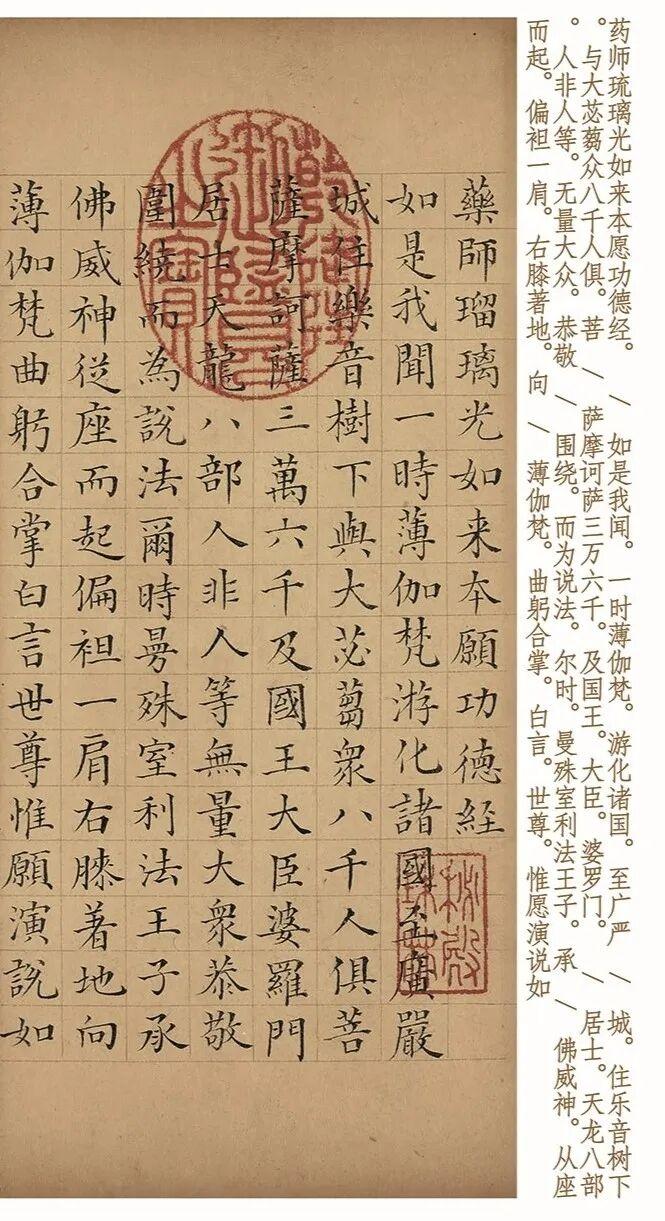 药师琉璃光如来本愿功德经。/ 如是我闻。一时薄伽梵。游化诸国。至广严 / 城。住乐音树下
。与大苾蒭众八千人俱。菩 / 萨摩诃萨三万六千。及国王。大臣。婆罗门。/ 居士。天龙八部
。人非人等。无量大众。恭敬 / 围绕。而为说法。尔时。曼殊室利法王子。承 / 佛威神。从座
而起。偏袒一肩。右膝著地。向 / 薄伽梵。曲躬合掌。白言。世尊。惟愿演说如
藥師瑠璃光如来本願功德経
如是我聞一時薄伽梵游化諸國至廣嚴
城住樂音樹下與大苾蒭衆八千人俱菩
薩摩訶薩三萬六千及國王大臣婆羅門
居士天龍八部人非人等無量大衆恭敬
圍繞而為說法爾時曼殊室利法王子承
佛威神從座而起偏袒一肩右膝著地向
薄伽梵曲躬合掌白言世尊惟願演說如
乾隆
御覽
之寶
秘殿
珠林